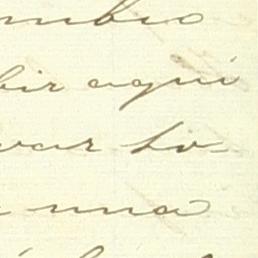 mbio
bir aqui
var so-
una